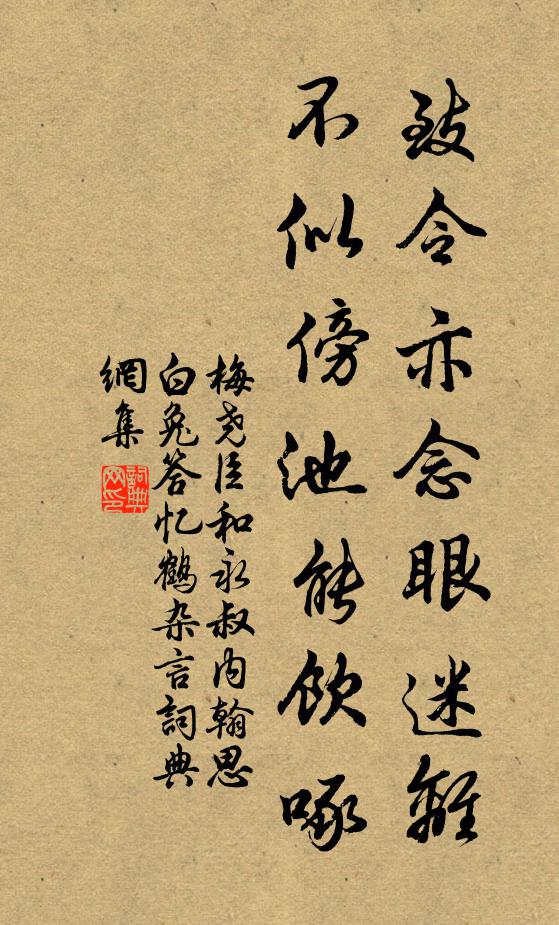 致令亦念眼迷離
不似傍池能飲啄
梅尧臣和永叔内翰思
白兔答忆鶴杂言詞典
網集
詞典
网印